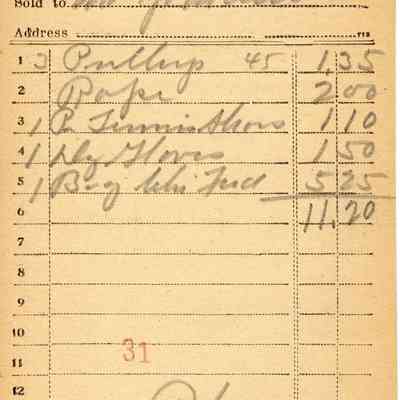 Sold to
Address
1 3 Pullup 45 1.35
2 Rope 2 00
3 1 P Tennis Shoes 1 10
4 1 Dz Gloves 1 50
5 1 Bag Chi Feed 5 25
6 11.20
7
8
9
10
31
11
12